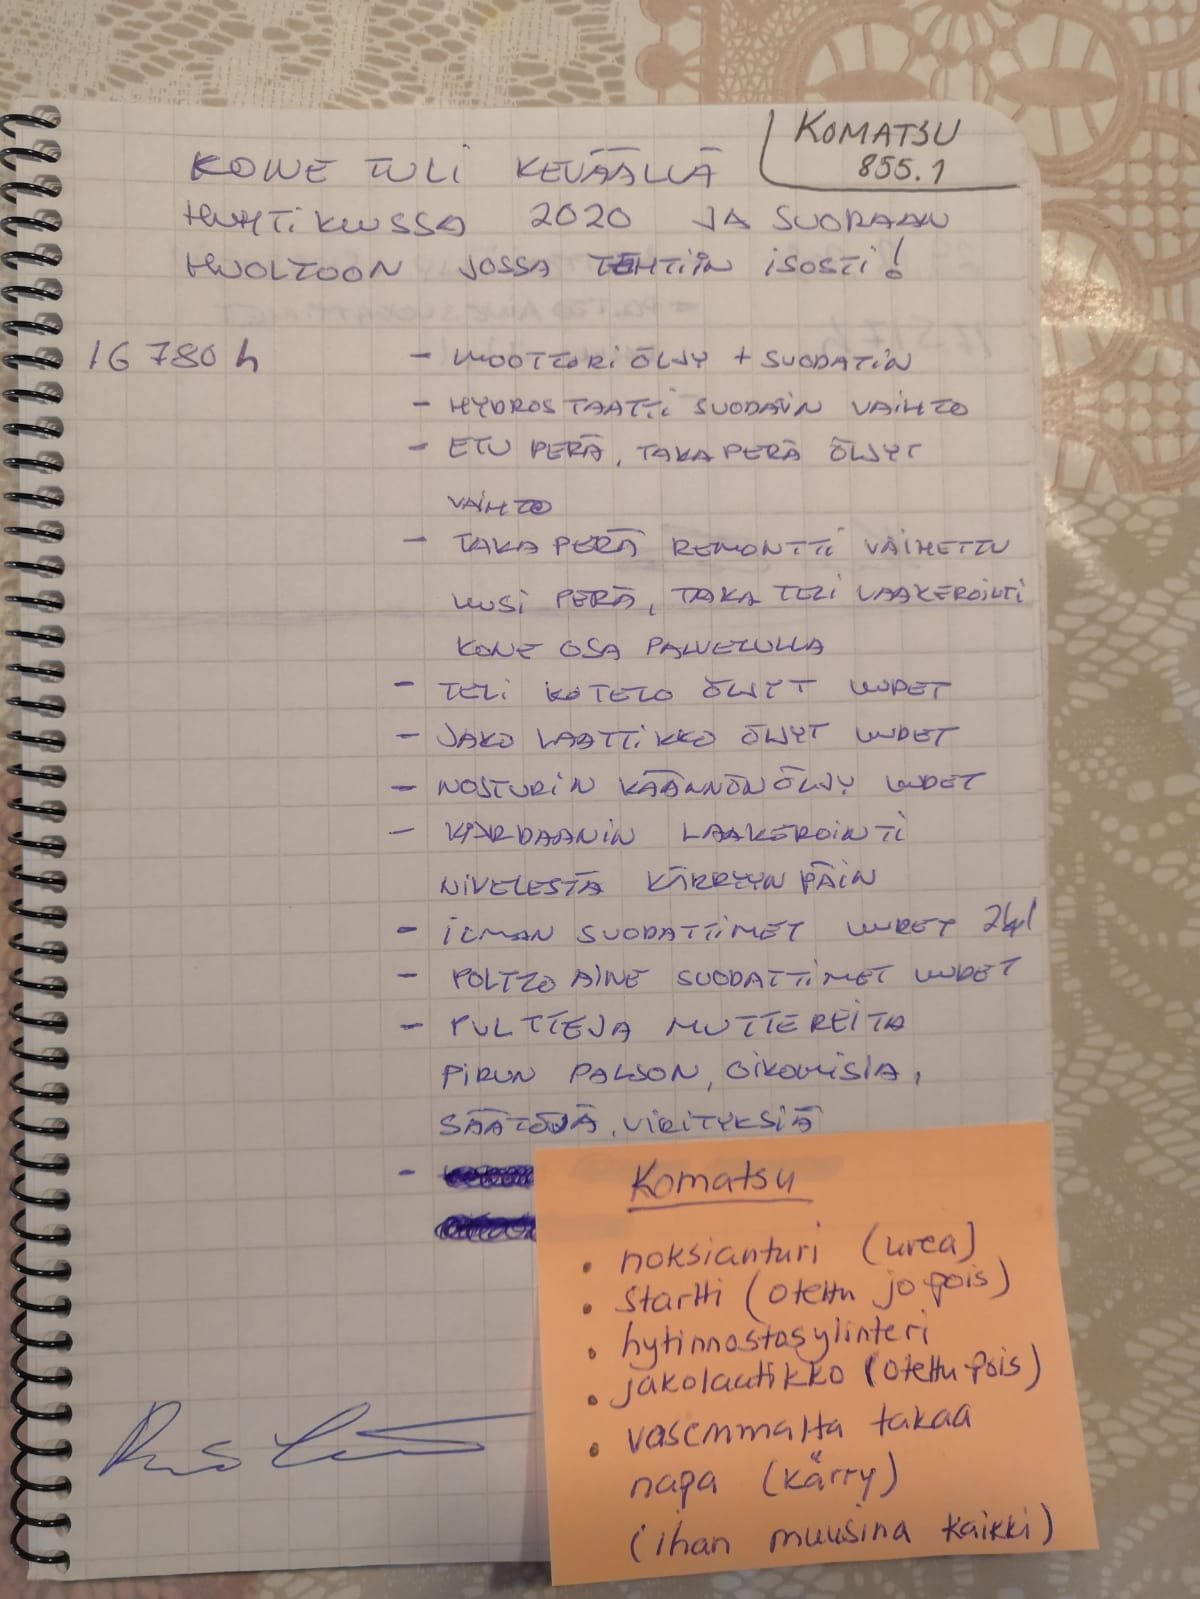 KOMATSU
855.1
KONE TULI KEVÄÄLLÄ
HUHTIKUSSA 2020 JA SUORAAN
HUOLTOON JOSSA TEHTIIN ISOSTI!
16 780 h
- MOOTTORI ÖLJY + SUODATIN
- HYDROSTAATTI SUODATIN VAIHTO
- ETU PERÄ, TAKA PERÄ ÖLJYT
VAIHTO
- TAKA PERÄ REMONTTI VAIHETTU
UUSI PERÄ, TAKA TELI LAAKEROINTI
KONE OSA PALVELULLA
- TELI KOTELO ÖLJYT UUDET
- JAKO LAATTIKKO ÖLJYT UUDET
- NOSTURIN KÄÄNNÖN ÖLJY UUDET
- KARDAANIN LAAKEROINTI
NIVELESTÄ KÄRRYYN PÄIN
- ILMAN SUODATTIMET UUDET 2kpl
- POLTTO AINE SUODATTIMET UUDET
- PULTTEJA MUTTEREITA
PIRUN PALJON, OIKOMISIA,
SÄÄTÖJÄ, VIRITYKSIÄ
-
Komatsu
• noksianturi (urea)
• Startti (otettu jo pois)
• hytinnostosylinteri
• jakolaatikko (otettu pois)
• vasemmalta takaa
napa (kärry)
(ihan muusina kaikki)